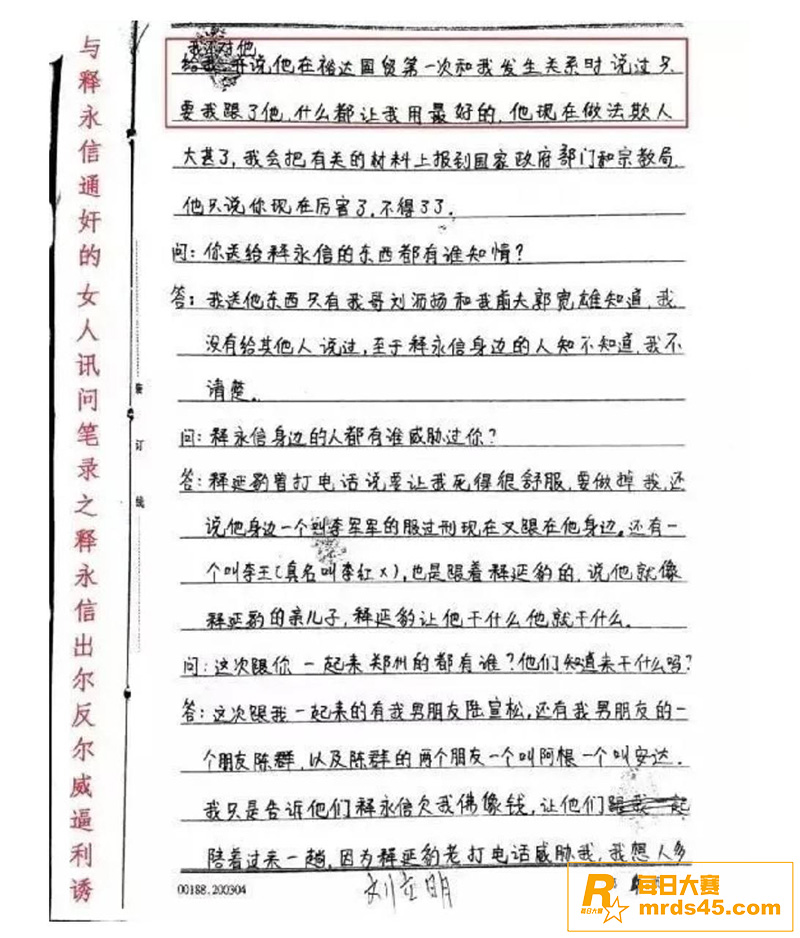 与释永信通奸的女人讯问笔录之释永信出尔反尔威逼利诱
我还对他
说,他在裕达国贸第一次和我发生关系时说过只
要我跟了他,什么都让我用最好的,他现在做法欺人
太甚了,我会把有关的材料上报到国家政府部门和宗教局
他只说你现在厉害了,不得了了.
问:你送给释永信的东西都有谁知情?
答:我送他东西只有我哥刘沥扬和我前夫郭宽雄知道,我
没有给其他人说过,至于释永信身边的人知不知道,我不
清楚。
问:释永信身边的人都有谁威胁过你?
答:释延豹曾打电话说要让我死得很舒服,要做掉我,还
说他身边一个叫李军军的服过刑现在又跟在他身边。还有一
个叫李王(真名叫李红x),也是跟着释延豹的,说他就像
释延豹的亲儿子,释延豹让他干什么他就干什么.
问:这次跟你一起来郑州的都有谁?他们知道来干什么吗?
答:这次跟我一起来的有我男朋友陆宣松,还有我男朋友的一
个朋友陈群,以及陈群的两个朋友一个叫阿根一个叫安达.
我只是告诉他们释永信欠我佛像钱,让他们跟我一起
陪着过来一趟,因为释延豹老打电话威胁我,我想人多
装
订
线
00188.200304
刘立明
每日大赛
R
每日大赛
mrds45.com